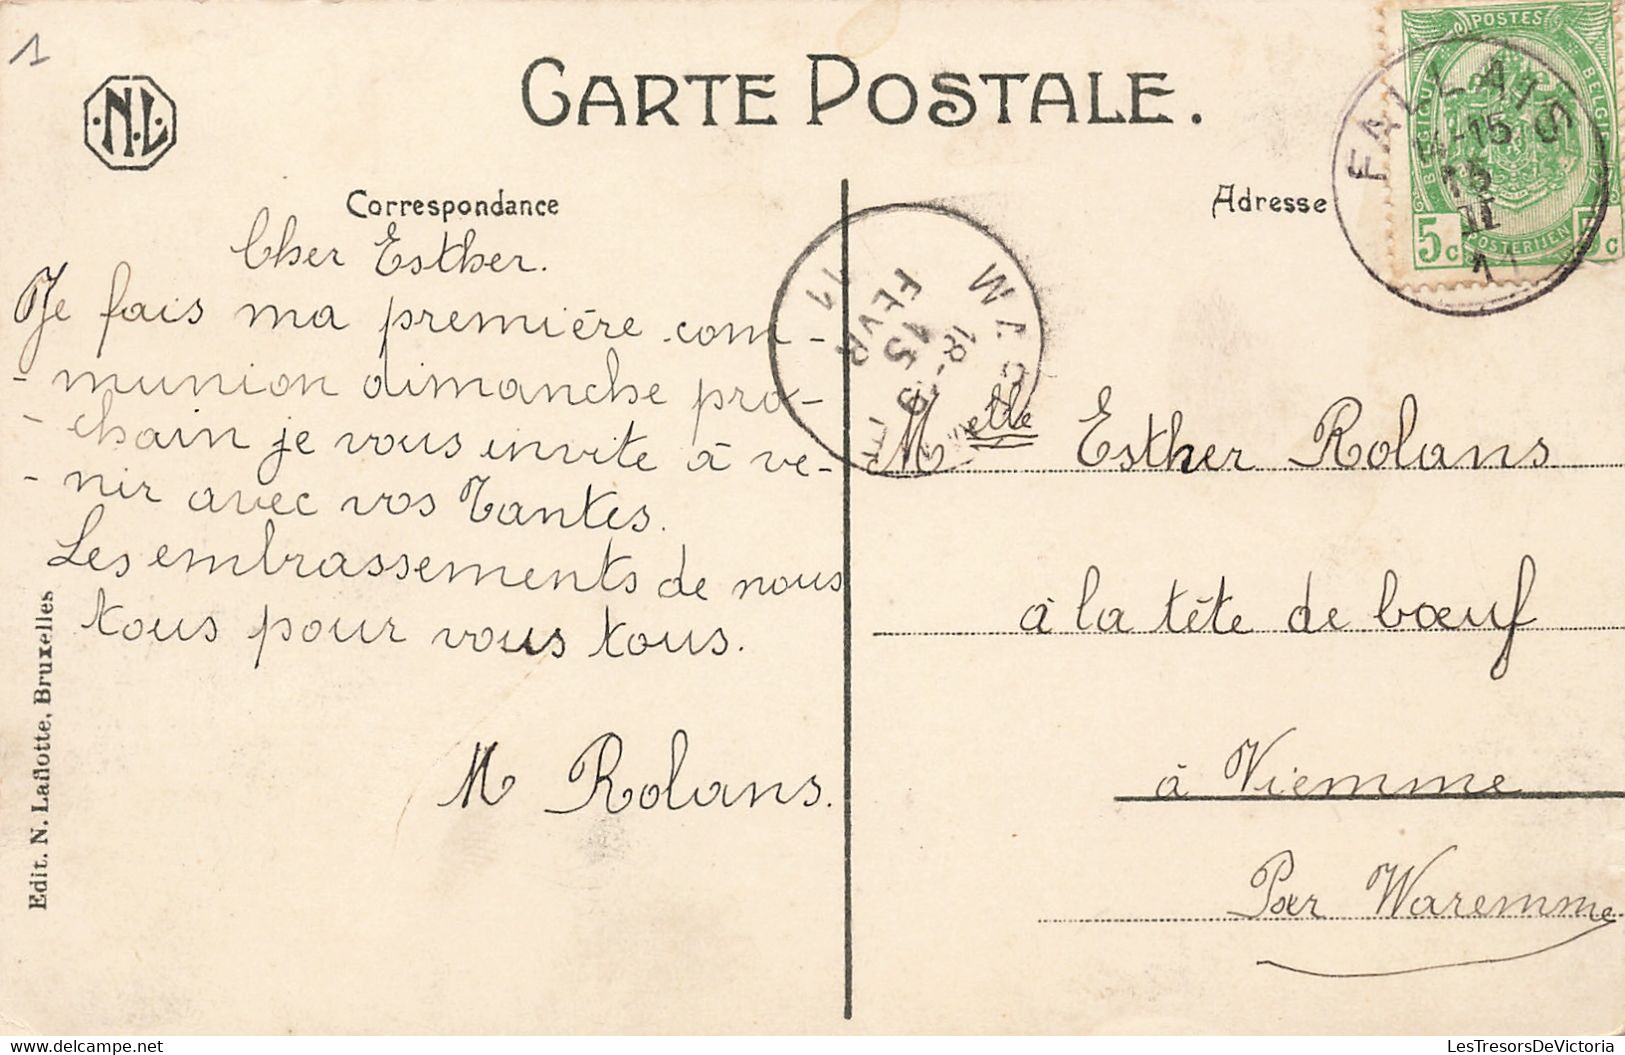 1
N.L.
CARTE POSTALE.
Correspondance
Cher Esther.
Je fais ma première com-
- munion dimanche pro-
- chain je vous invite à ve-
- nir avec vos Tantes.
Les embrassements de nous
tous pour vous tous.
M Rolans.
Edit. N. Laflotte, Bruxelles
Adresse
POSTES
BELGIQUE
BELGIË
5c
POSTERIJEN
5c
FALLAIS
-15
15
II
11
18-19
15
FEVR
11
Melle Esther Rolans
à la tête de bœuf
à Viemme
Par Waremme
LesTresorsDeVictoria.com